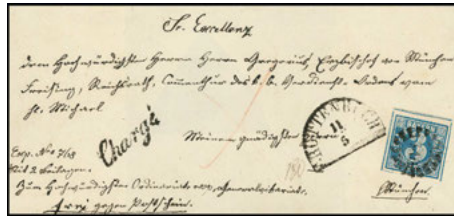 Sr. Excellenz
dem Hochwürdigsten Herrn Herrn Gregorius, Erzbischof von München
Freising, Reichsrath, Comenthur des k. b. Verdienst-Ordens vom
hl. Michael
Chargé
Meinem gnädigsten Herrn
ROTTENBUCH
11
5
Exp. Nr. 7/68
Mit 2 Beilagen.
Zum Hochwürdigsten Ordinariate Generalvikariat.
München
frei gegen Postschein.